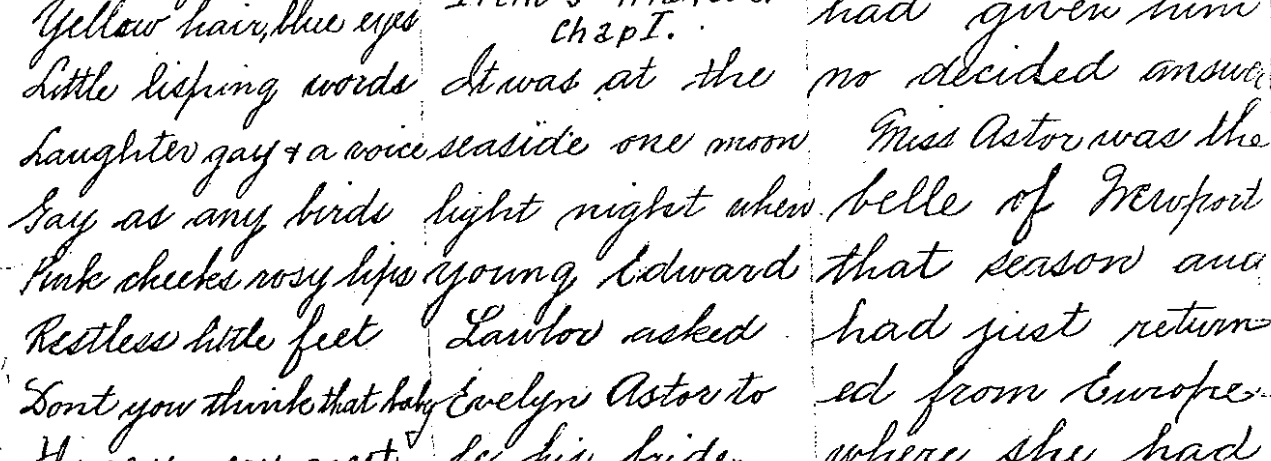 Yellow hair, blue eyes
Little lisping words
Laughter gay & a voice
Gay as any birds
Pink cheeks rosy lips
Restless little feet
Dont you think that baby
Chap I.
It was at the
seaside one moon
light night when
young Edward
Lawlor asked
Evelyn Astor to
be his bride
had given him
no decided answer
Miss Astor was the
belle of Newport
that season and
had just return
ed from Europe
where she had